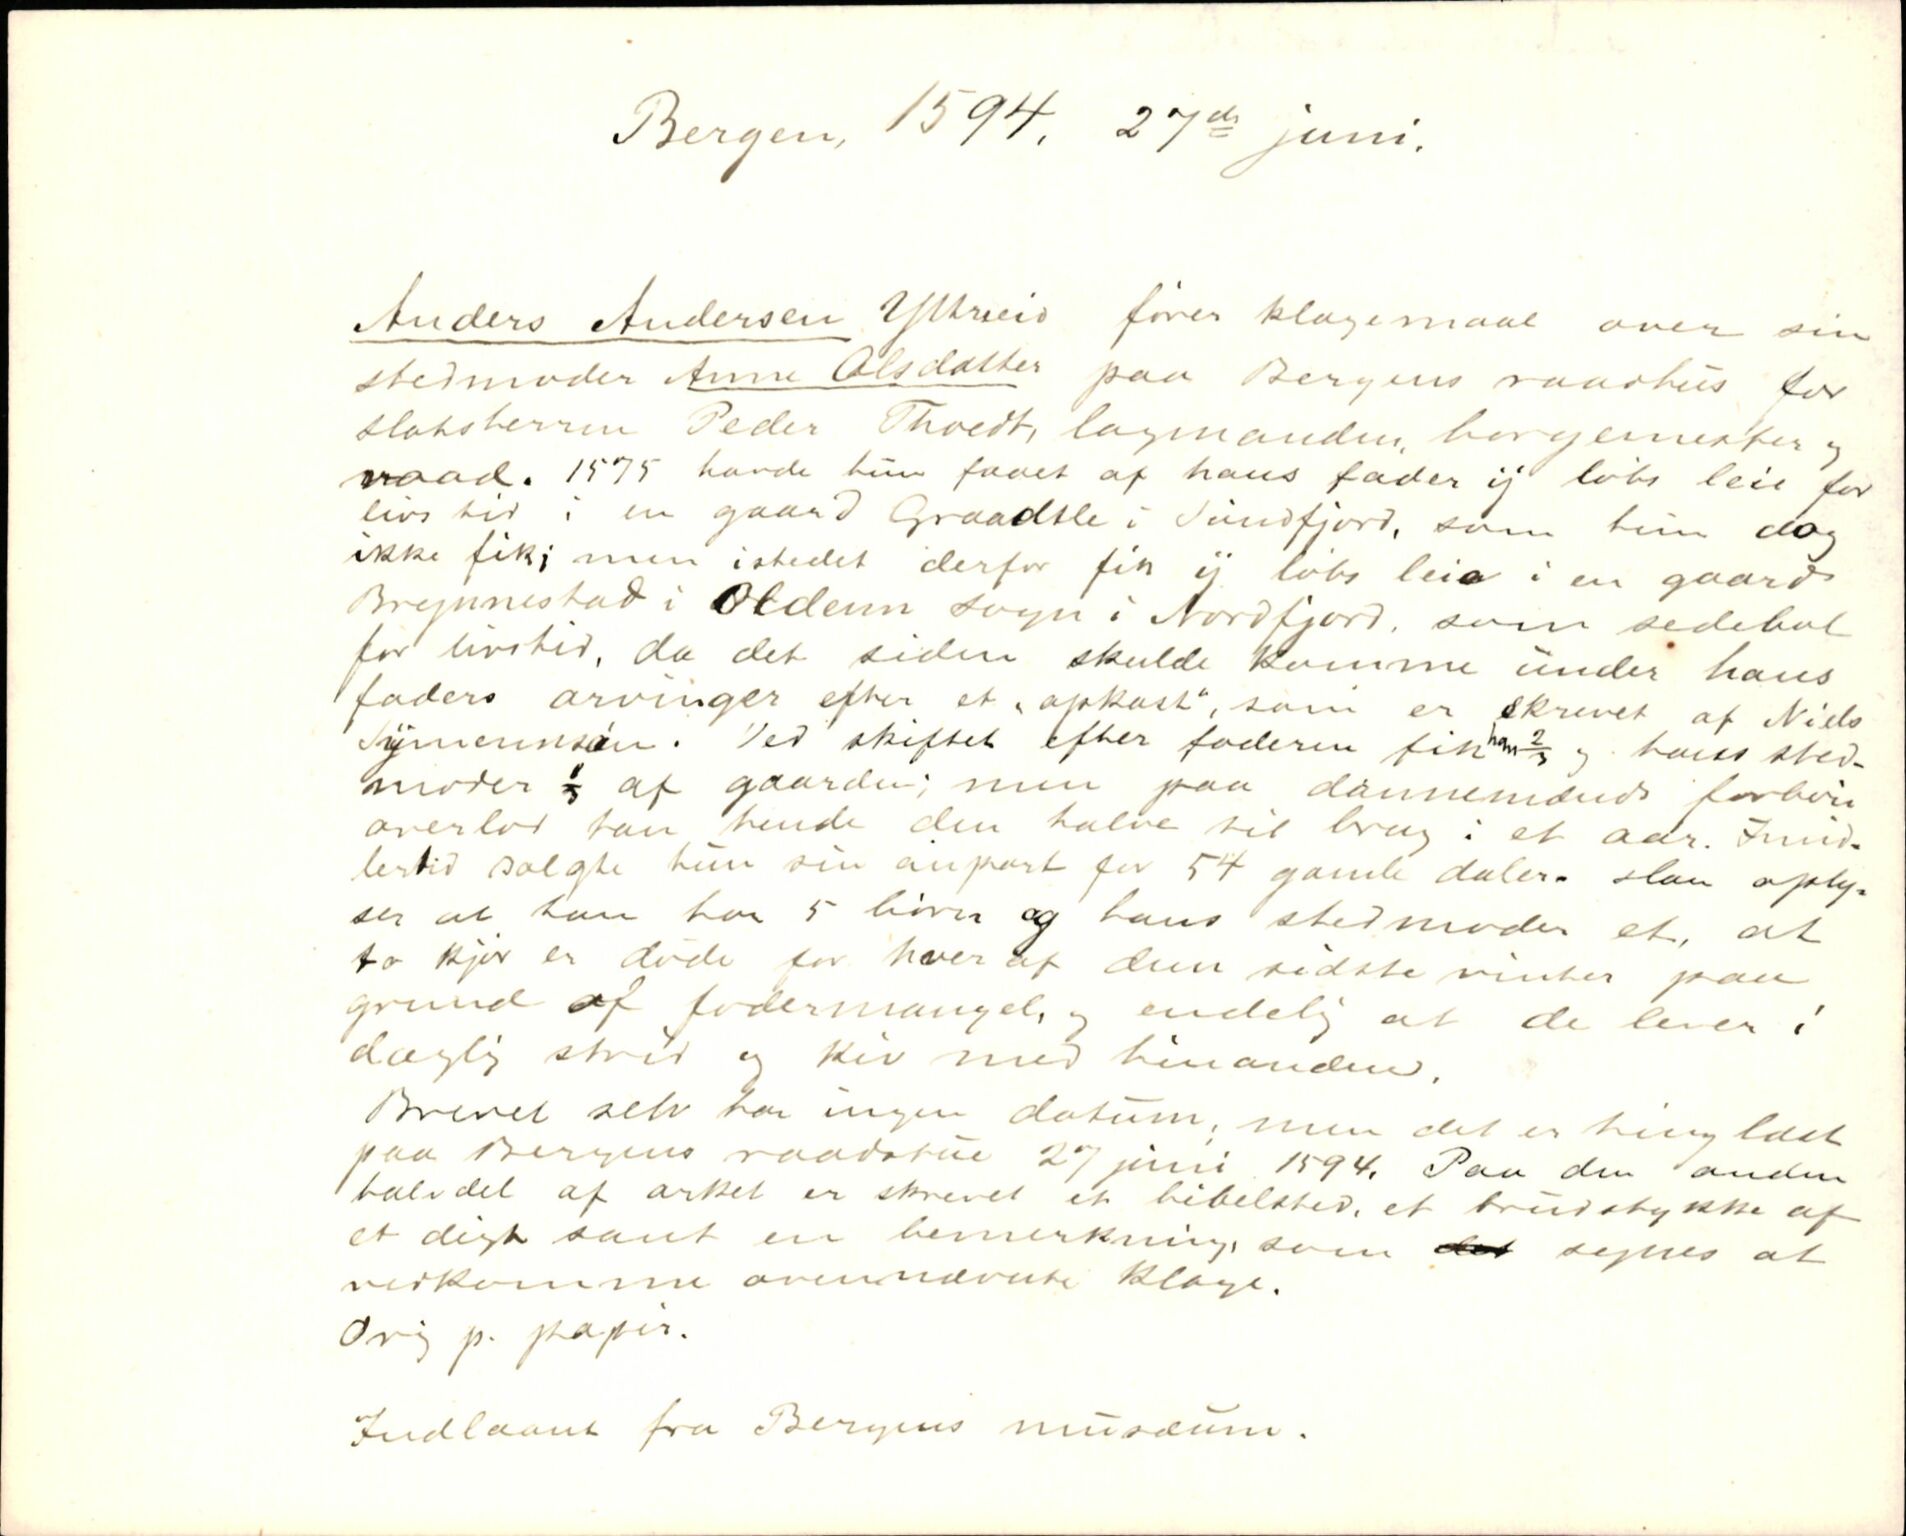 Bergen, 1594. 27de juni.
Anders Andersen Yttreeid fører klagemaal over sin
stedmoder Anne Olsdatter paa Bergens raadhus for
slotsherren Peder Thoedt, lagmanden, borgemester og
raad. 1575 havde hun faaet af hans fader ij løbs leie for
livstid i en gaard Graadtle i Søndfjord, som hun dog
ikke fik; men istedet derfor fik ij løbs leie i en gaard
Brynnestad i Oldenn sogn i Nordfjord, som sedebol
for livstid, da det siden skulde komme under hans
faders arvinger efter et "opkast", som er skrevet af Niels
Sÿmennsøn. Ved skiftet efter faderen fik han 2/3 og hans sted-
moder 1/3 af gaarden; men paa dannemænds forbøn
overlod han hende den halve til brug i et aar. Imid-
lertid solgte hun sin anpart for 54 gamle daler. Han oply-
ser at han har 5 børn og hans stedmoder et, at
to kjør er døde for hver af dem sidste vinter paa
grund af fodermangel, og endelig at de lever i
daglig strid og kiv med hinanden.
Brevet selv har ingen datum, men det er tinglæst
paa Bergens raadstue 27 juni 1594. Paa den anden
halvdel af arket er skrevet et bibelsted, et brudstykke af
et digt samt en bemerkning, som det synes at
vedkomme ovennævnte klage.
Orig p. papir.
Indlaant fra Bergens musæum.